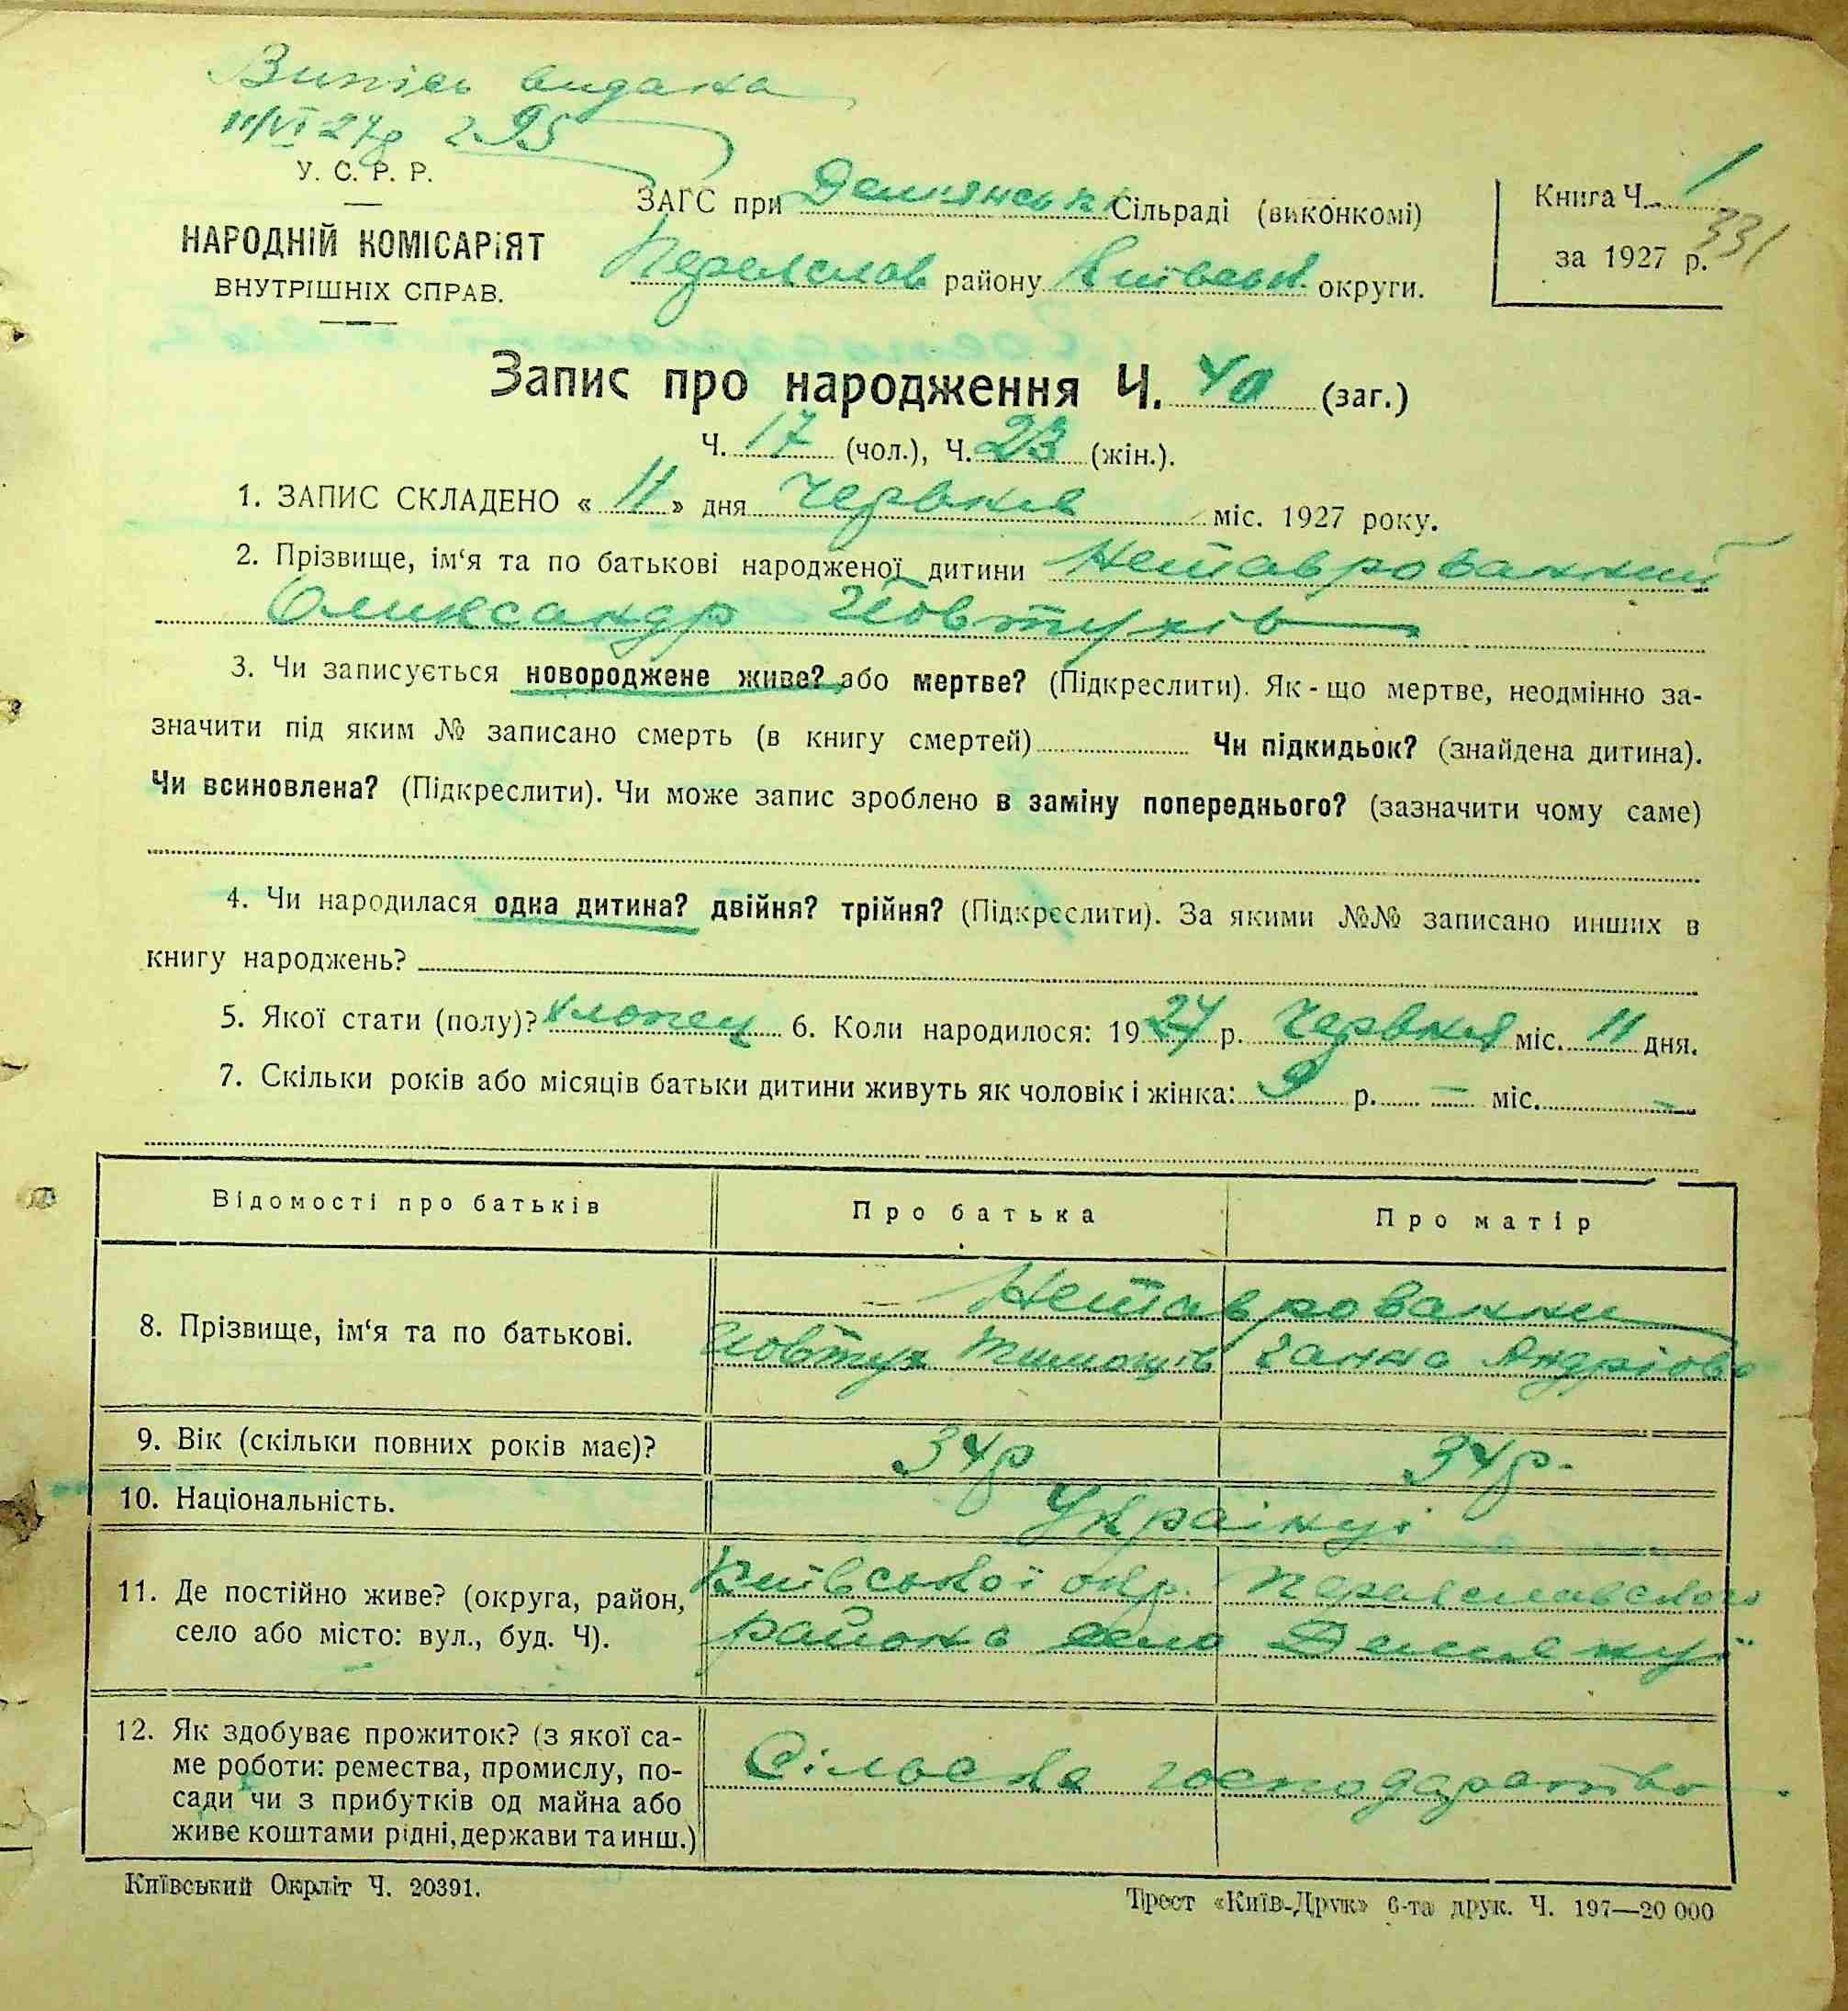 Випись видана
11/VI 27р 295
У. С. Р. Р.
НАРОДНІЙ КОМІСАРІЯТ
ВНУТРІШНІХ СПРАВ.
ЗАГС при Дем'янськ Сільраді (виконкомі)
Переяслав району Київськ округи.
Книга Ч. 1
331
за 1927 р.
Запис про народження Ч. 40 (заг.)
Ч. 17 (чол.), Ч. 23 (жін.).
1. ЗАПИС СКЛАДЕНО « 11 » дня Червня міс. 1927 року.
2. Прізвище, ім‘я та по батькові народженої дитини Нештаврований
Олександр Йовтухів
3. Чи записується новороджене живе? або мертве? (Підкреслити). Як-що мертве, неодмінно за-
значити під яким № записано смерть (в книгу смертей) Чи підкидьок? (знайдена дитина).
Чи всиновлена? (Підкреслити). Чи може запис зроблено в заміну попереднього? (зазначити чому саме)
4. Чи народилася одна дитина? двійня? трійня? (Підкреслити). За якими №№ записано инших в
книгу народжень?
5. Якої стати (полу)? хлопец 6. Коли народилося: 1927 р. Червня міс. 11 дня.
7. Скільки років або місяців батьки дитини живуть як чоловік і жінка: 9 р. — міс. —
Відомості про батьків Про батька Про матір
8. Прізвище, ім‘я та по батькові.
Нештавровани
Йовтух Тимошів Ганна Андріова
9. Вік (скільки повних років має)? 34р 34р.
10. Національність. Українці
11. Де постійно живе? (округа, район,
село або місто: вул., буд. Ч).
Київської окр. Переяславского
района село Демянці
12. Як здобуває прожиток? (з якої са-
ме роботи: ремества, промислу, по-
сади чи з прибутків од майна або
живе коштами рідні, держави та инш.)
Сільське господарство
Київський Окрліт Ч. 20391.
Трест «Київ-Друк» 6-та друк. Ч. 197—20 000